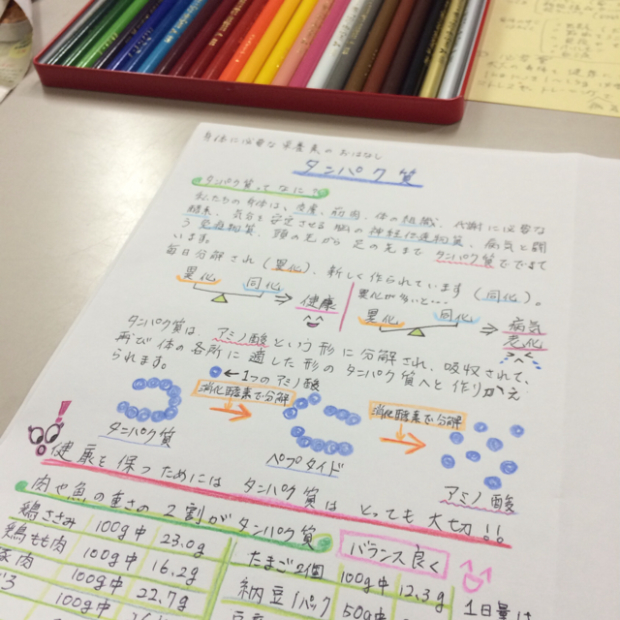 身体に必要な栄養素のおはなし
タンパク質
タンパク質ってなに?
私たちの身体は、皮膚、筋肉、体の組織、代謝に必要な
酵素、気分を安定させる脳の神経伝達物質、病気と闘
う免疫物質、頭の先から足の先までタンパク質でできて
います。
毎日分解され(異化)、新しく作られています(同化)。
異化 同化 ⇒ 健康
異化が多いと…
異化 同化 ⇒ 病気
老化
タンパク質は、アミノ酸という形に分解され、吸収されて、
再び体の各所に適した形のタンパク質へと作りかえ
られます。
←1つのアミノ酸
消化酵素で分解
消化酵素で分解
タンパク質
ペプタイド
アミノ酸
健康を保つためには タンパク質は とっても大切!!
肉や魚の重さの2割がタンパク質
バランス良く
鶏ささみ 100g中 23.0g
鶏もも肉 100g中 16.2g
豚肉 100g中 22.7g
100g中
たまご2個 100g中 12.3g
納豆1パック 50g中
1日量は